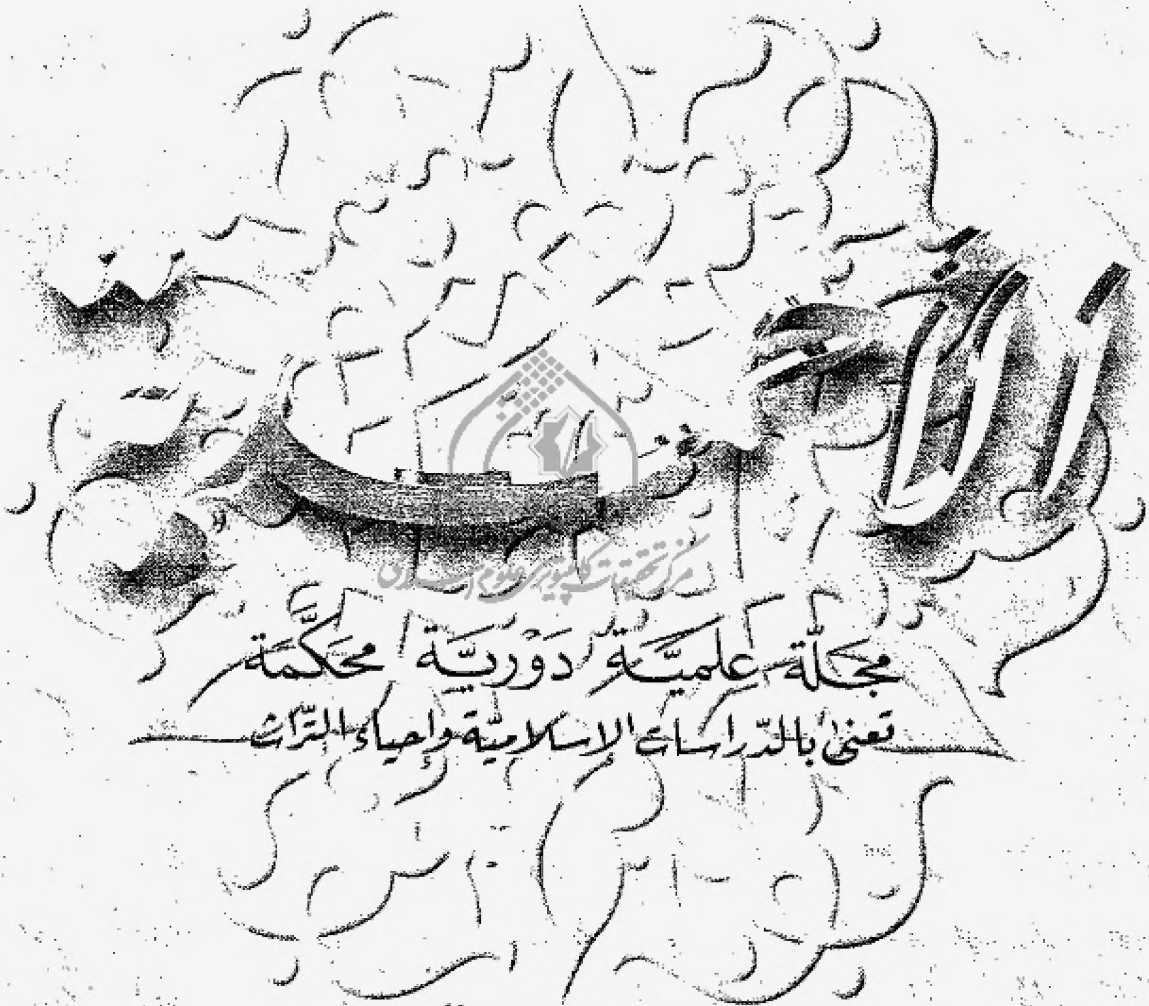 الأحمدية
مركز تحقيقات كامپيوتری علوم اسلامی
مَجَلَّة عِلميَّة دَوْريَّة محَكَّمَة
تعنىٰ بالدّراسات الإسلاميّة وإحياء التّراث